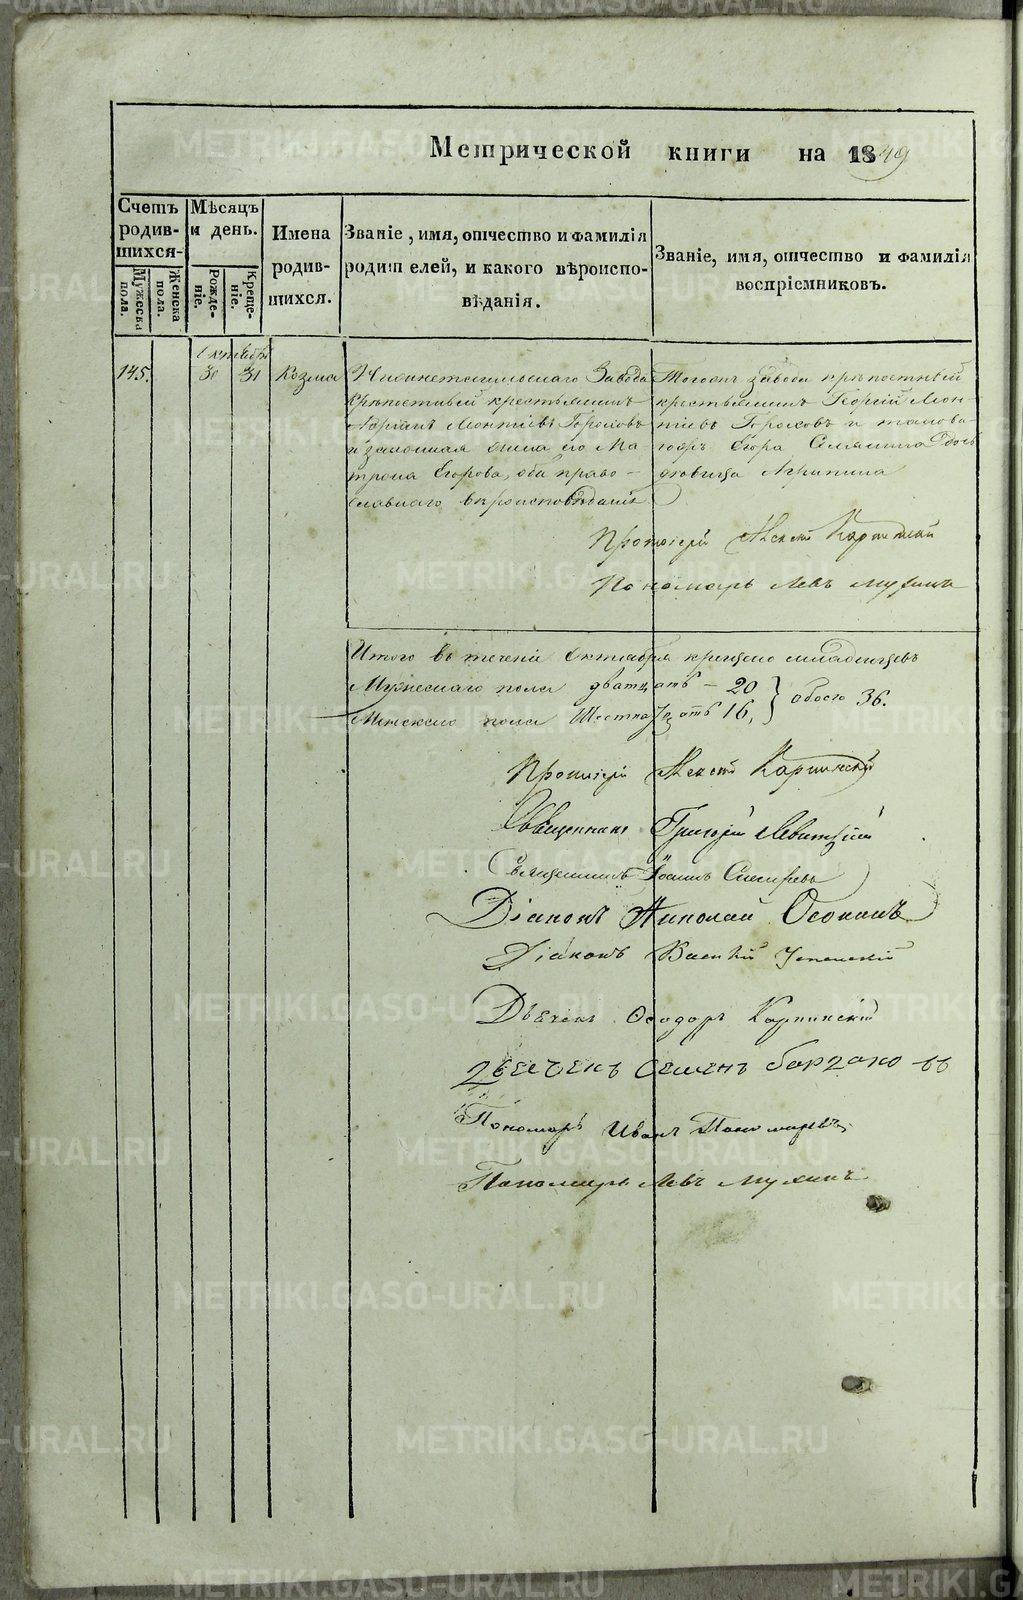 METRIKI.GASO-URAL.RU
Метрической книги на 1849
Счетъ родив-
шихся-
Мужеска пола.
Женска пола.
Мѣсяцъ и день.
Рожде-
ніе.
Креще-
ніе.
Имена
родив-
шихся.
Званіе, имя, отчество и фамилія
родителей, и какого вѣроиспо-
вѣданія.
Званіе, имя, отчество и фамилія
воспріемниковъ.
Октября
145.
30
31
Козма
Нижнетагильскаго Завода
крѣпостный крестьянинъ
Леонтіевъ
и законная жена его Ма
трона Егорова, оба право-
славнаго вѣроисповѣданія
Тогожъ завода крѣпостный
крестьянинъ Георгій Леон
тіевъ и таковаго
Егора
Агрипина
Протоіерей Алексей Карпинскій
Пономарь Левъ Мухинъ
Итого въ теченіи Октября крещено младенцевъ
Мужескаго пола дватцать - 20
Женскаго пола Шестнадцать 16,
обоего 36.
Протоіерей Алексей Карпинскій
Священникъ Григорій Левитскій
Священникъ Іоаннъ
Діаконъ Николай Осокинъ
Діаконъ Василій Успенскій
Дьячекъ Ѳеодоръ Карпинскій
Дьечекъ Семенъ
Пономарь Иванъ Пономаревъ
Пономарь Левъ Мухинъ